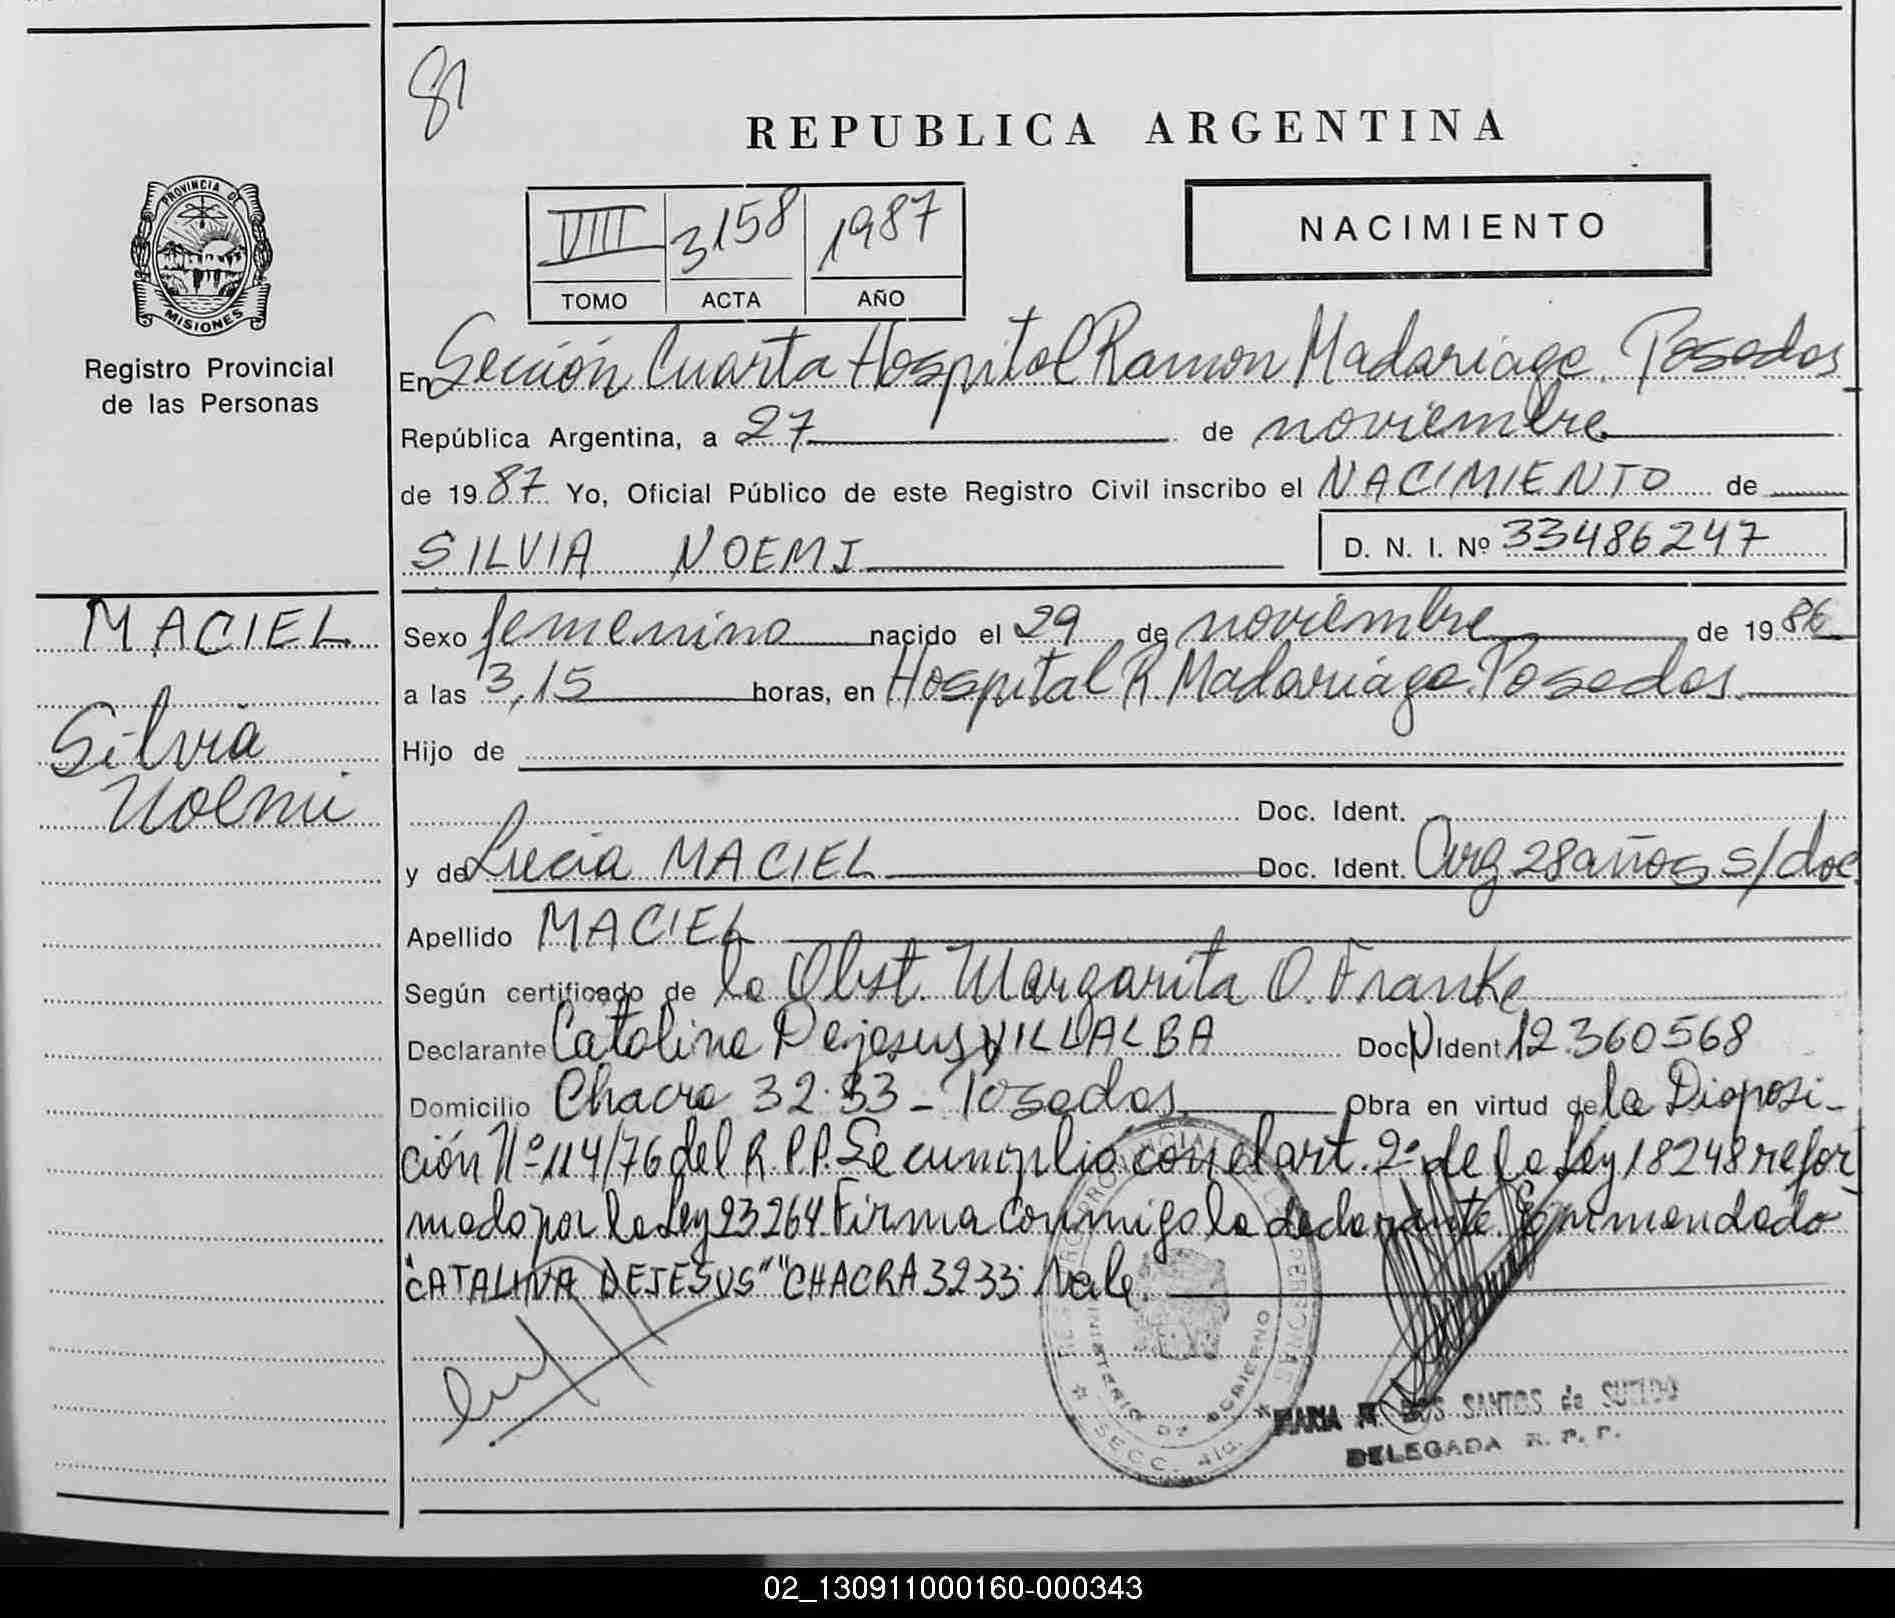 81
REPUBLICA ARGENTINA
PROVINCIA DE
MISIONES
Registro Provincial
de las Personas
VIII 3158 1987
TOMO ACTA AÑO
NACIMIENTO
En Sección Cuarta Hospital Ramon Madariaga. Posadas
República Argentina, a 27 de noviembre
de 1987 Yo, Oficial Público de este Registro Civil inscribo el NACIMIENTO de
SILVIA NOEMI D. N. I. Nº 33486247
MACIEL
Silvia
Noemi
Sexo femenino nacido el 29 de noviembre de 1986
a las 3,15 horas, en Hospital R. Madariaga. Posadas.
Hijo de
Doc. Ident.
y de Lucia MACIEL Doc. Ident. Arg 28 años s/doc.
Apellido MACIEL
Según certificado de la Obst. Margarita O. Franke
Declarante Catalina Dejesus VILLALBA Doc. Ident 12.360568
Domicilio Chacra 32-33 - Posadas Obra en virtud de la Disposi-
ción Nº 114/76 del R.P.P. Se cumplió con el art. 2º de la Ley 18248 refor-
mado por la Ley 23264. Firma conmigo la declarante. Enmendado
"CATALINA DEJESUS" "CHACRA 3233" Vale.
MINISTERIO DE GOBIERNO
SECC. 4ta.
MARIA DOS SANTOS de SUELDO
DELEGADA R. P. P.
02_130911000160-000343